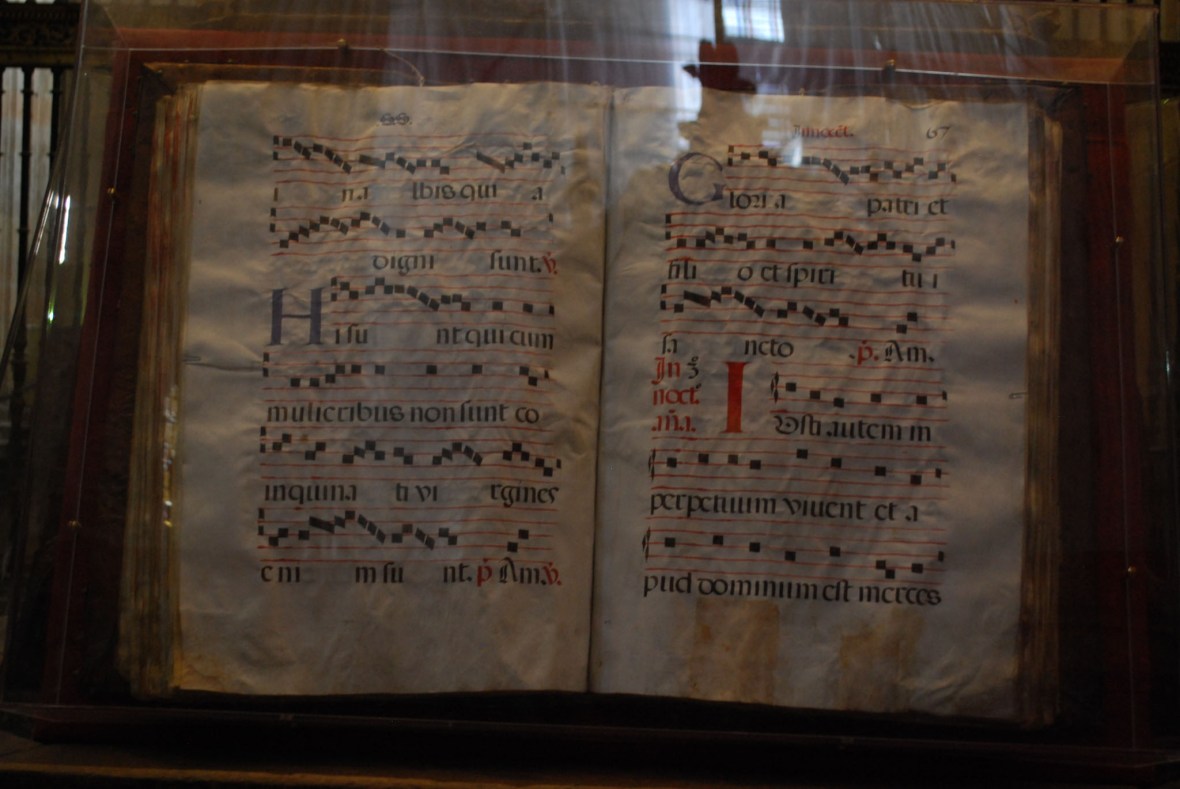 i na lbis qui a
digni sunt. ℣.
Hi su nt qui cum
mulieribus non sunt co
inquina ti vi rgines
e ni m su nt. p̃ Am. ℣.
Innocēt. 67
Glori a patri et
fili o et spiri tu i
sa ncto . p̃. Am.
In 3º
noct.
aña.
IUsti autem in
perpetuum vivent et a
pud dominum est merces